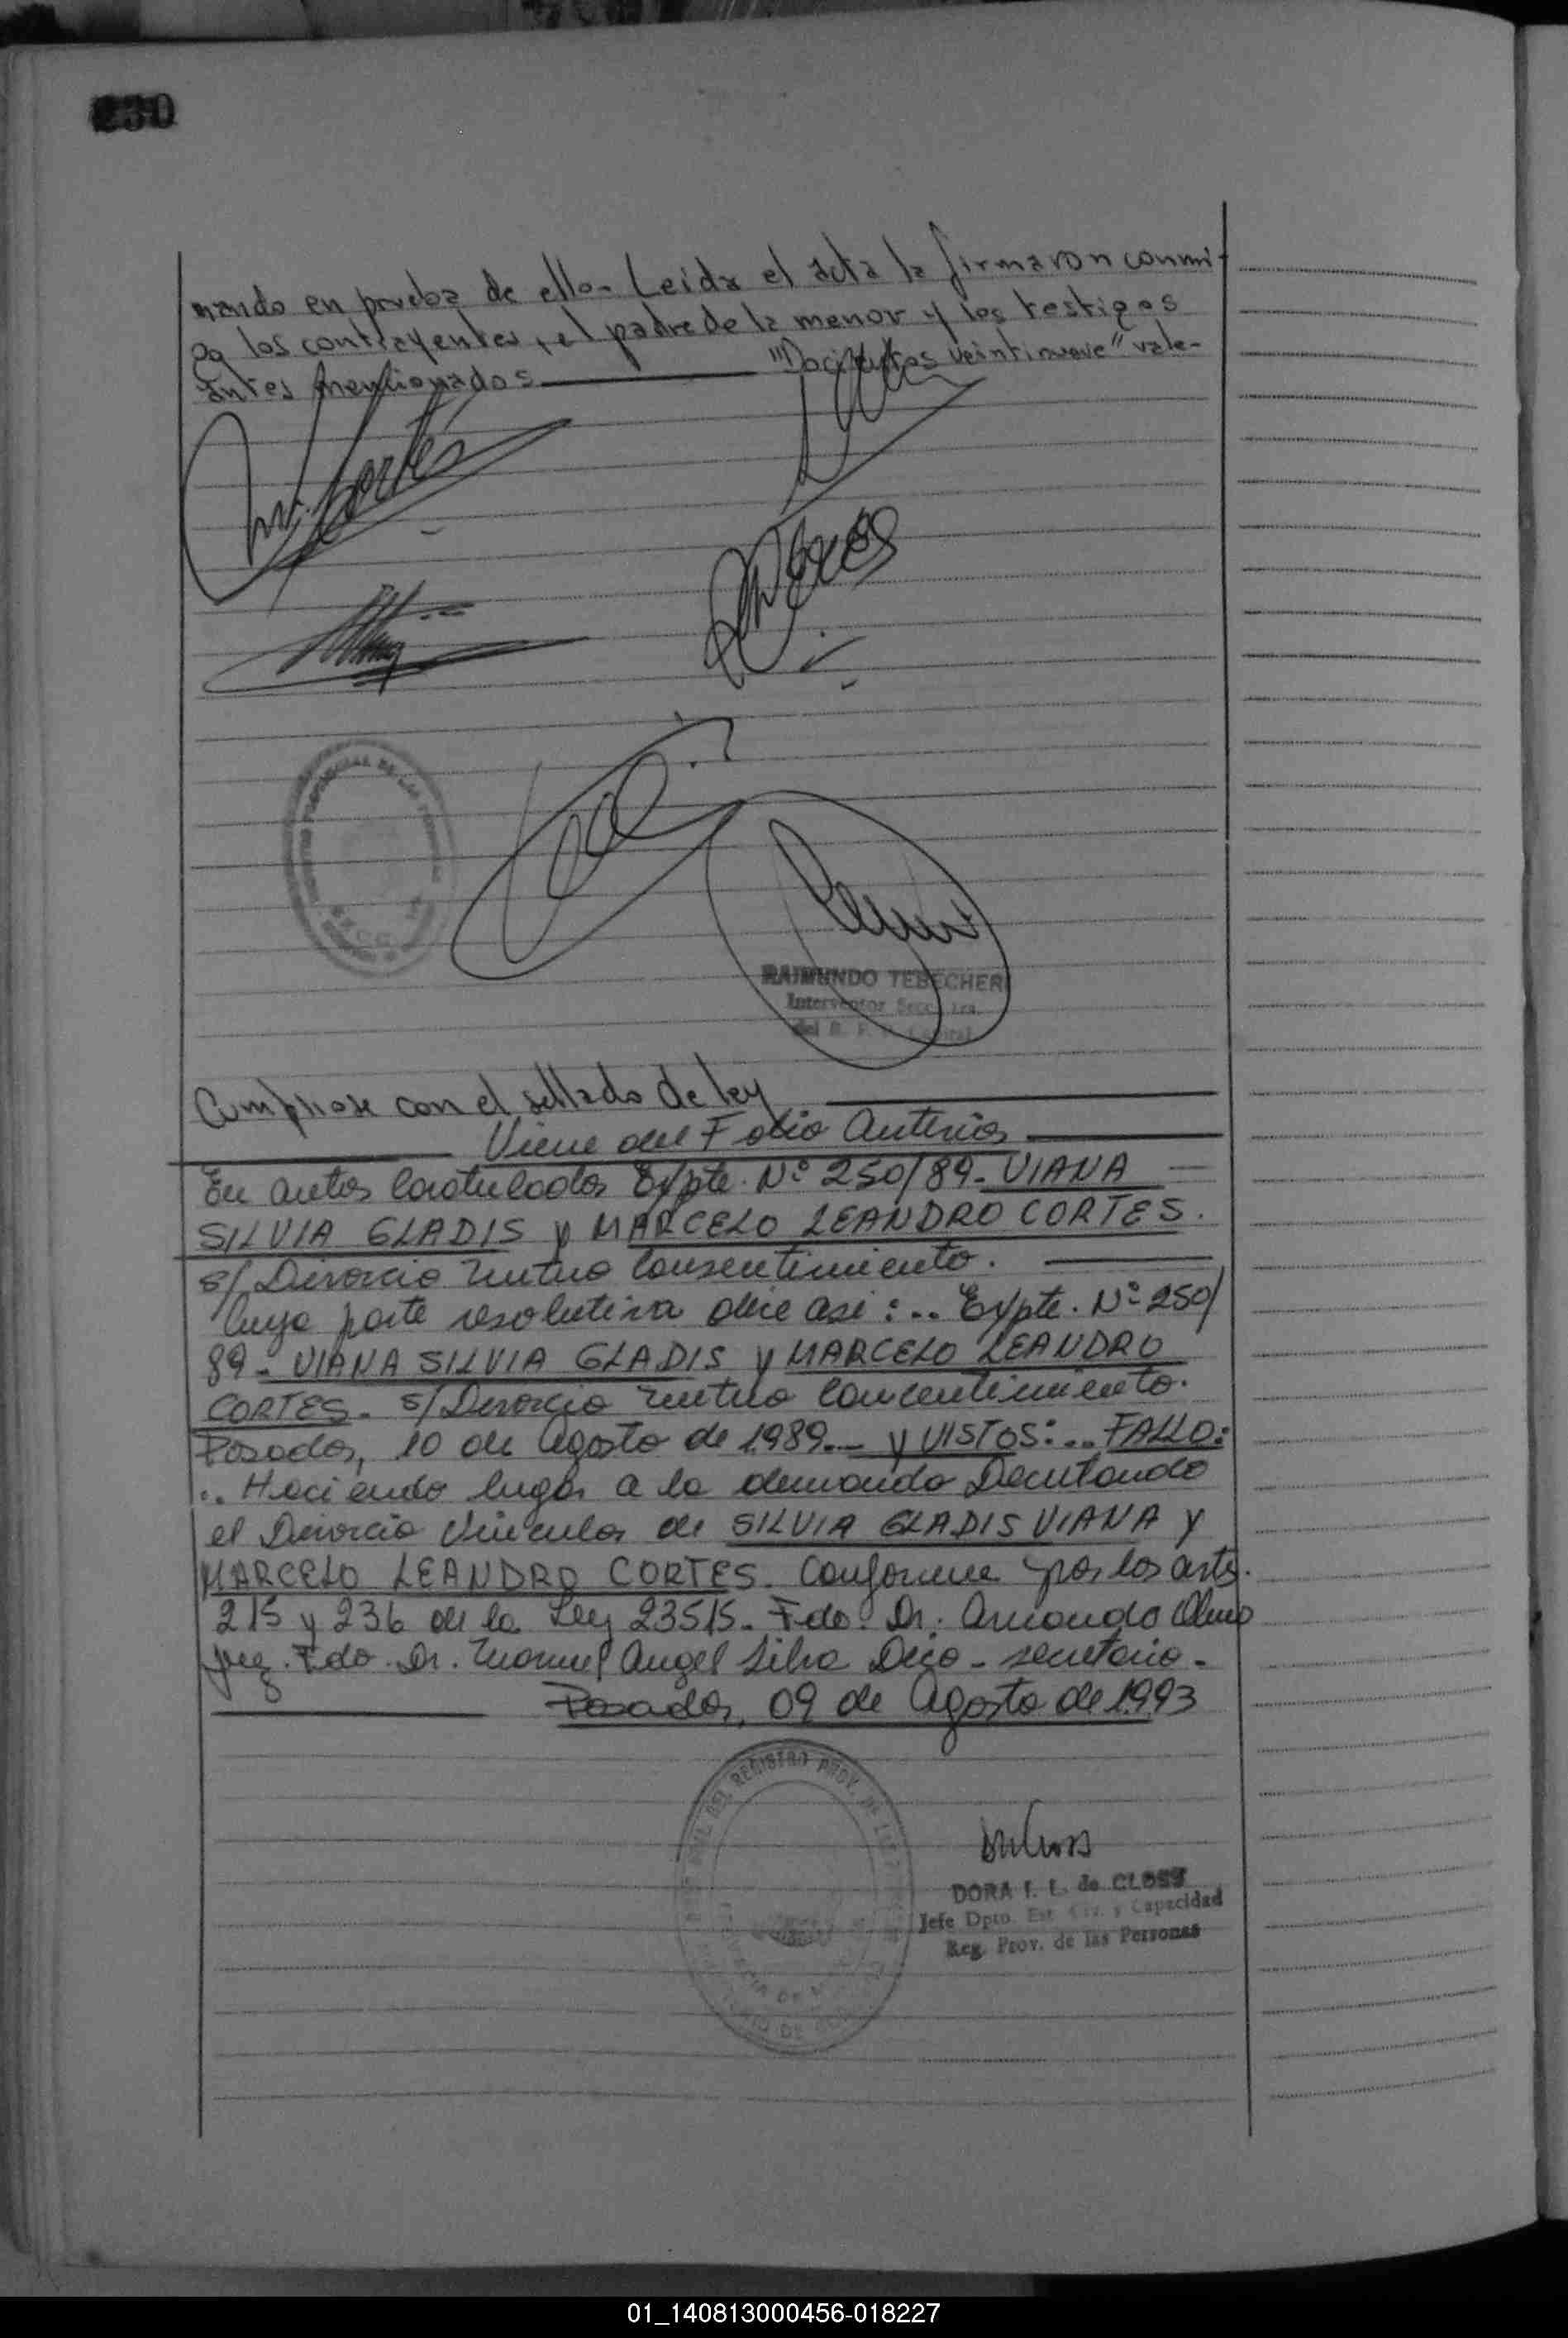 230
mando en prueba de ello- Leida el acta la firmaron conmi-
go los contrayentes, el padre de la menor y los testigos
antes mencionados "Docientos veintinueve" vale-
Cortés
RAIMUNDO TEBECHERI
Interventor
del R. P.
Cumpliose con el sellado de ley
Viene del Folio Anterior
En autos Caratulados Expte. Nº 250/89- VIANA
SILVIA GLADIS y MARCELO LEANDRO CORTES.
s/ Divorcio Mutuo Consentimiento.
Cuya parte resolutiva dice asi: .. Expte. Nº 250/
89- VIANA SILVIA GLADIS y MARCELO LEANDRO
CORTES- s/ Divorcio Mutuo Concentimiento.
Posadas, 10 de Agosto de 1989.- y VISTOS: .. FALLO:
.. Haciendo lugar a la demanda Decretando
el Divorcio Vincular de SILVIA GLADIS VIANA y
MARCELO LEANDRO CORTES. Conforme por los arts.
215 y 236 de la Ley 23515. Fdo. Dr. Armando Olmo
Juez. Fdo. Dr. Manuel Angel Silva Dico - secretario -
Posadas, 09 de Agosto de 1993
DEL REGISTRO PROV. DE LAS
DORA I. L. de CLOSS
Jefe Dpto. Est. Civ. y Capacidad
Reg. Prov. de las Personas
01_140813000456-018227